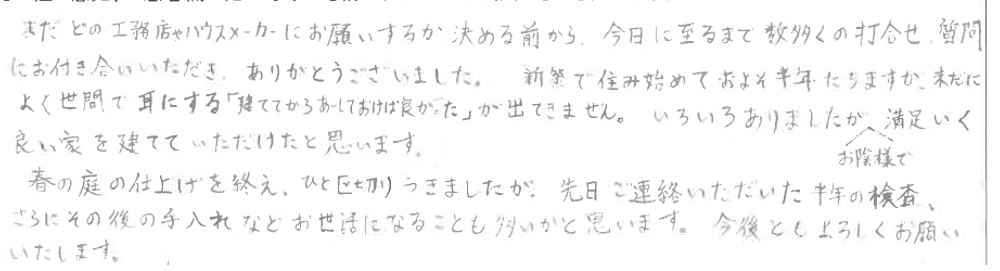 まだどの工務店やハウスメーカーにお願いするか決める前から、今日に至るまで数多くの打合せ、質問
にお付き合いいただき、ありがとうございました。 新築で住み始めておよそ半年たちますが、未だに
よく世間で耳にする「建ててからあーしておけば良かった」が出てきません。 いろいろありましたが、お陰様で満足いく
良い家を建てていただけたと思います。
春の庭の仕上げを終え、ひと区切りつきましたが、先日ご連絡いただいた半年の検査、
さらにその後の手入れなどお世話になることも多いかと思います。 今後ともよろしくお願い
いたします。